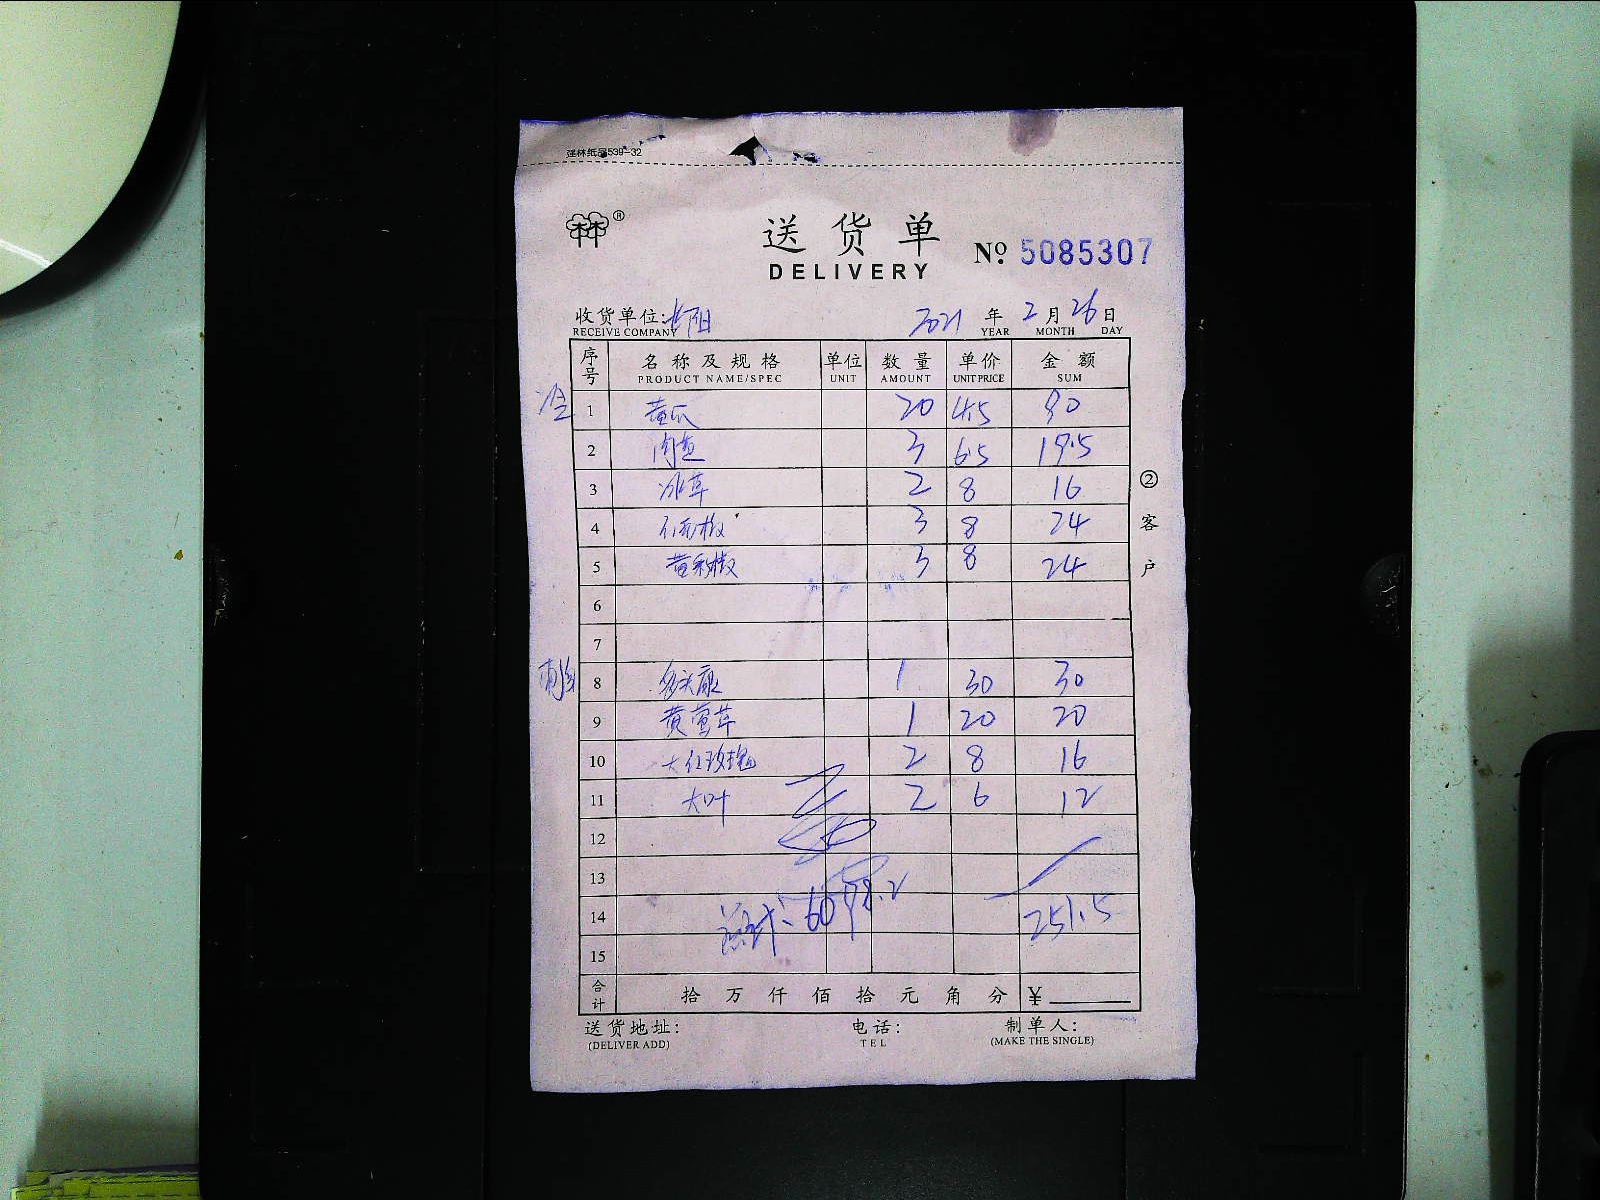 强林纸品539-32
林®
送货单
DELIVERY
№ 5085307
收货单位: 2021年2月26日
RECEIVE COMPANY YEAR MONTH DAY
序号 名称及规格 单位 数量 单价 金额
PRODUCT NAME/SPEC UNIT AMOUNT UNIT PRICE SUM
冷 1 黄瓜 20 4.5 90
2 3 6.5 19.5
3 冰草 2 8 16
4 3 8 24
5 黄彩椒 3 8 24
6
7
刺身 8 多头康 1 30 30
9 黄莺草 1 20 20
10 大红玫瑰 2 8 16
11 大叶 2 6 12
12
13
14 总计: 6098.2 251.5
15
合计 拾万仟佰拾元角分 ¥
②客户
送货地址: 电话: 制单人:
(DELIVER ADD) TEL (MAKE THE SINGLE)